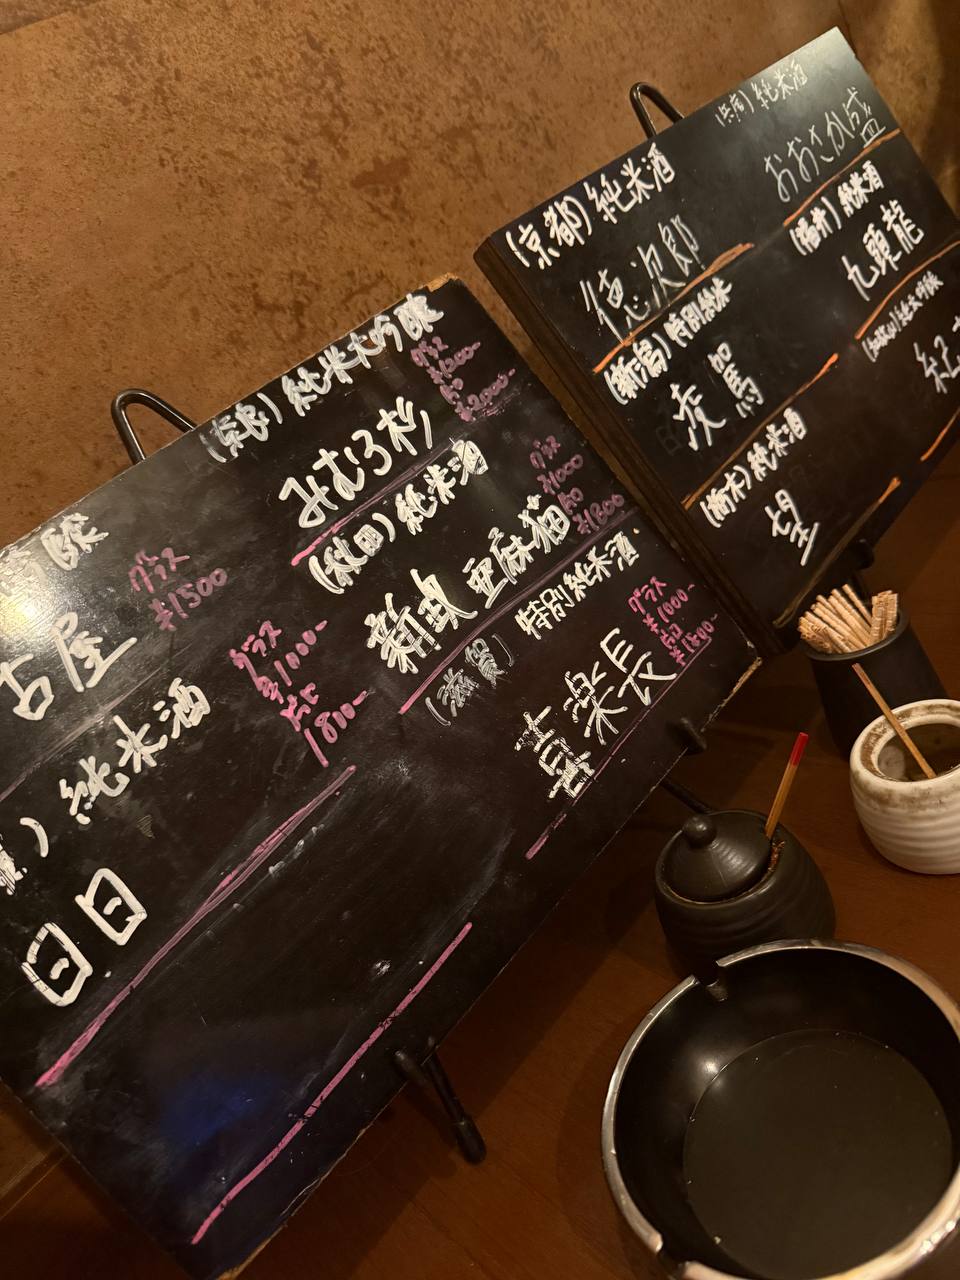 (奈良)純米大吟醸
みむろ杉
グラス
¥1200-
片口
¥2000-
(秋田)純米酒
新政 亜麻猫
グラス
¥1000
片口
¥1800
(滋賀) 特別純米酒
喜楽長
グラス
¥1000-
片口
¥1800-
吟醸
古屋
グラス
¥1500
)純米酒
日日
グラス
¥1000-
片口
1800-
(京都)純米酒
徳次郎
(新潟)特別純米
(栃木)純米酒
望
(兵庫)純米酒
おおさか盛
(福井)純米酒
九頭龍
(和歌山)純米大吟醸
紀